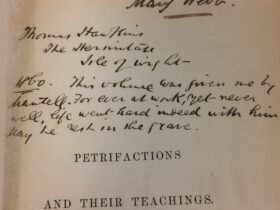 Mary Webb.
Thomas Hawkins
The Hermitage
Isle of Wight—
Who. This volume was given me by
himself. For ever at work, yet never
well, life went hard indeed with him
May he rest in the grave.
PETRIFACTIONS
AND THEIR TEACHINGS.